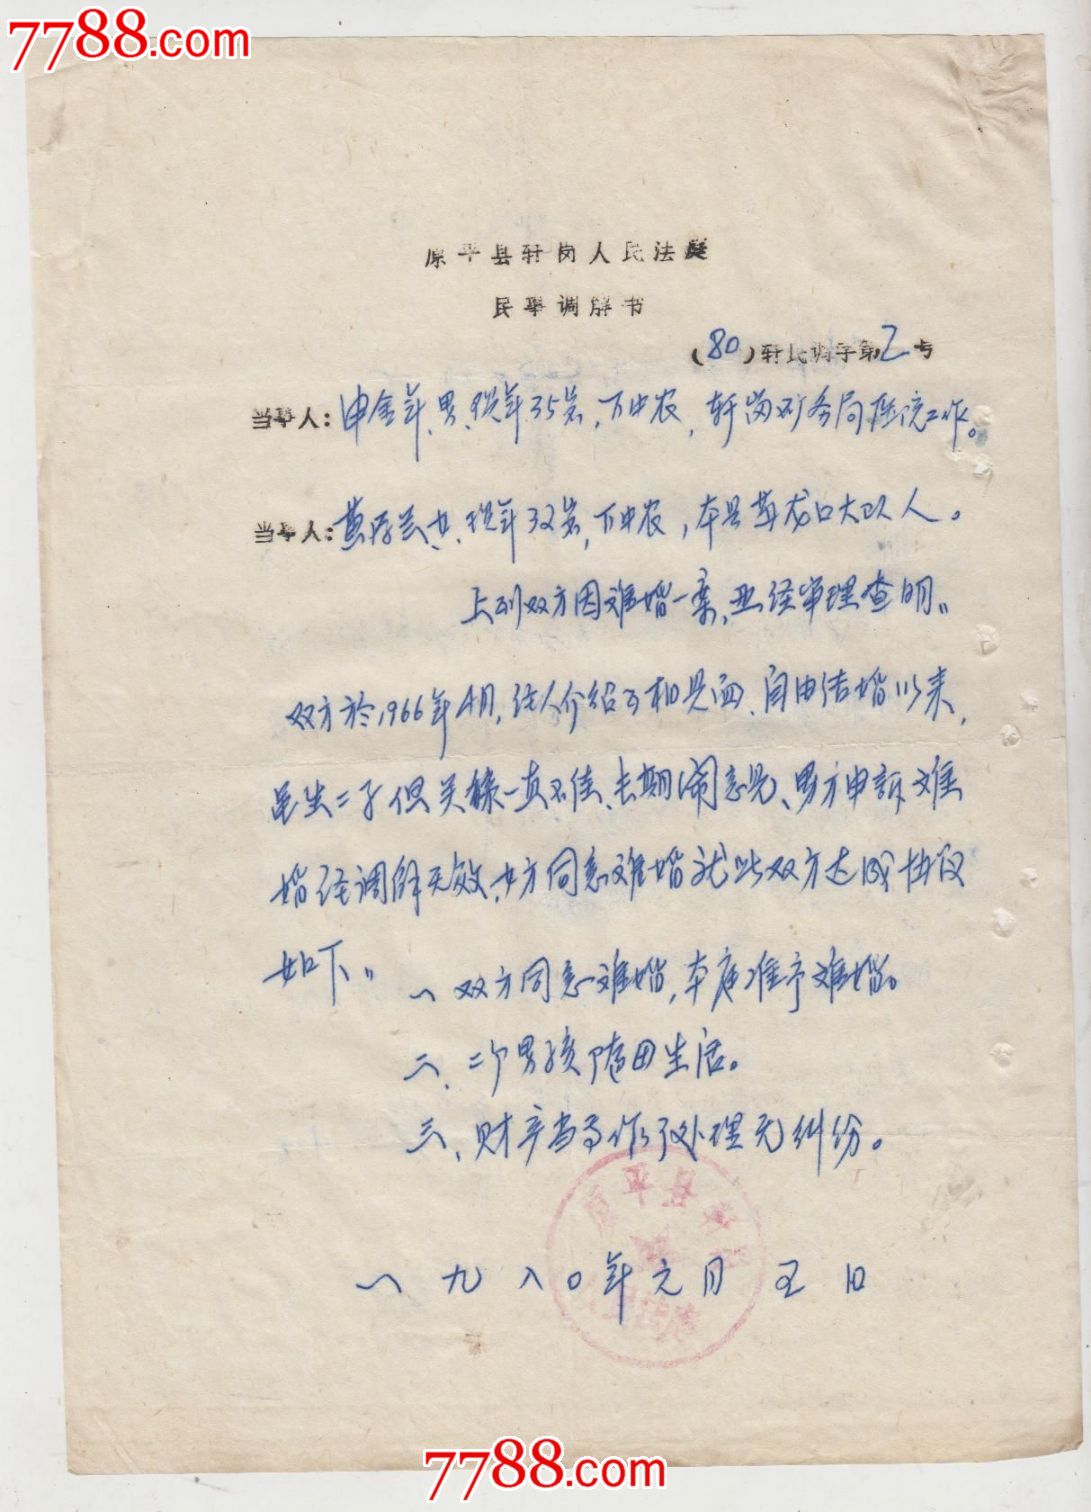 7788.com
原平县轩岗人民法庭
民事调解书
(80)轩民调字第2号
当事人：申金年、男、现年35岁，下中农，轩岗矿务局医院工作。
当事人：黄存兰、女、现年32岁，下中农，本县龙口大队人。
上列双方因难婚一案，业经审理查明。
双方於1966年4月，经人介绍互相见面、自由结婚以来，
虽生二子但关系一直不佳、长期闹意见、男方申诉难
婚经调解无效、女方同意难婚就此双方达成协议
如下。
一、双方同意难婚，本庭准予难婚。
二、二个男孩随田生活。
三、财产当事作了处理无纠份。
原平县
一九八〇年元月五日
7788.com